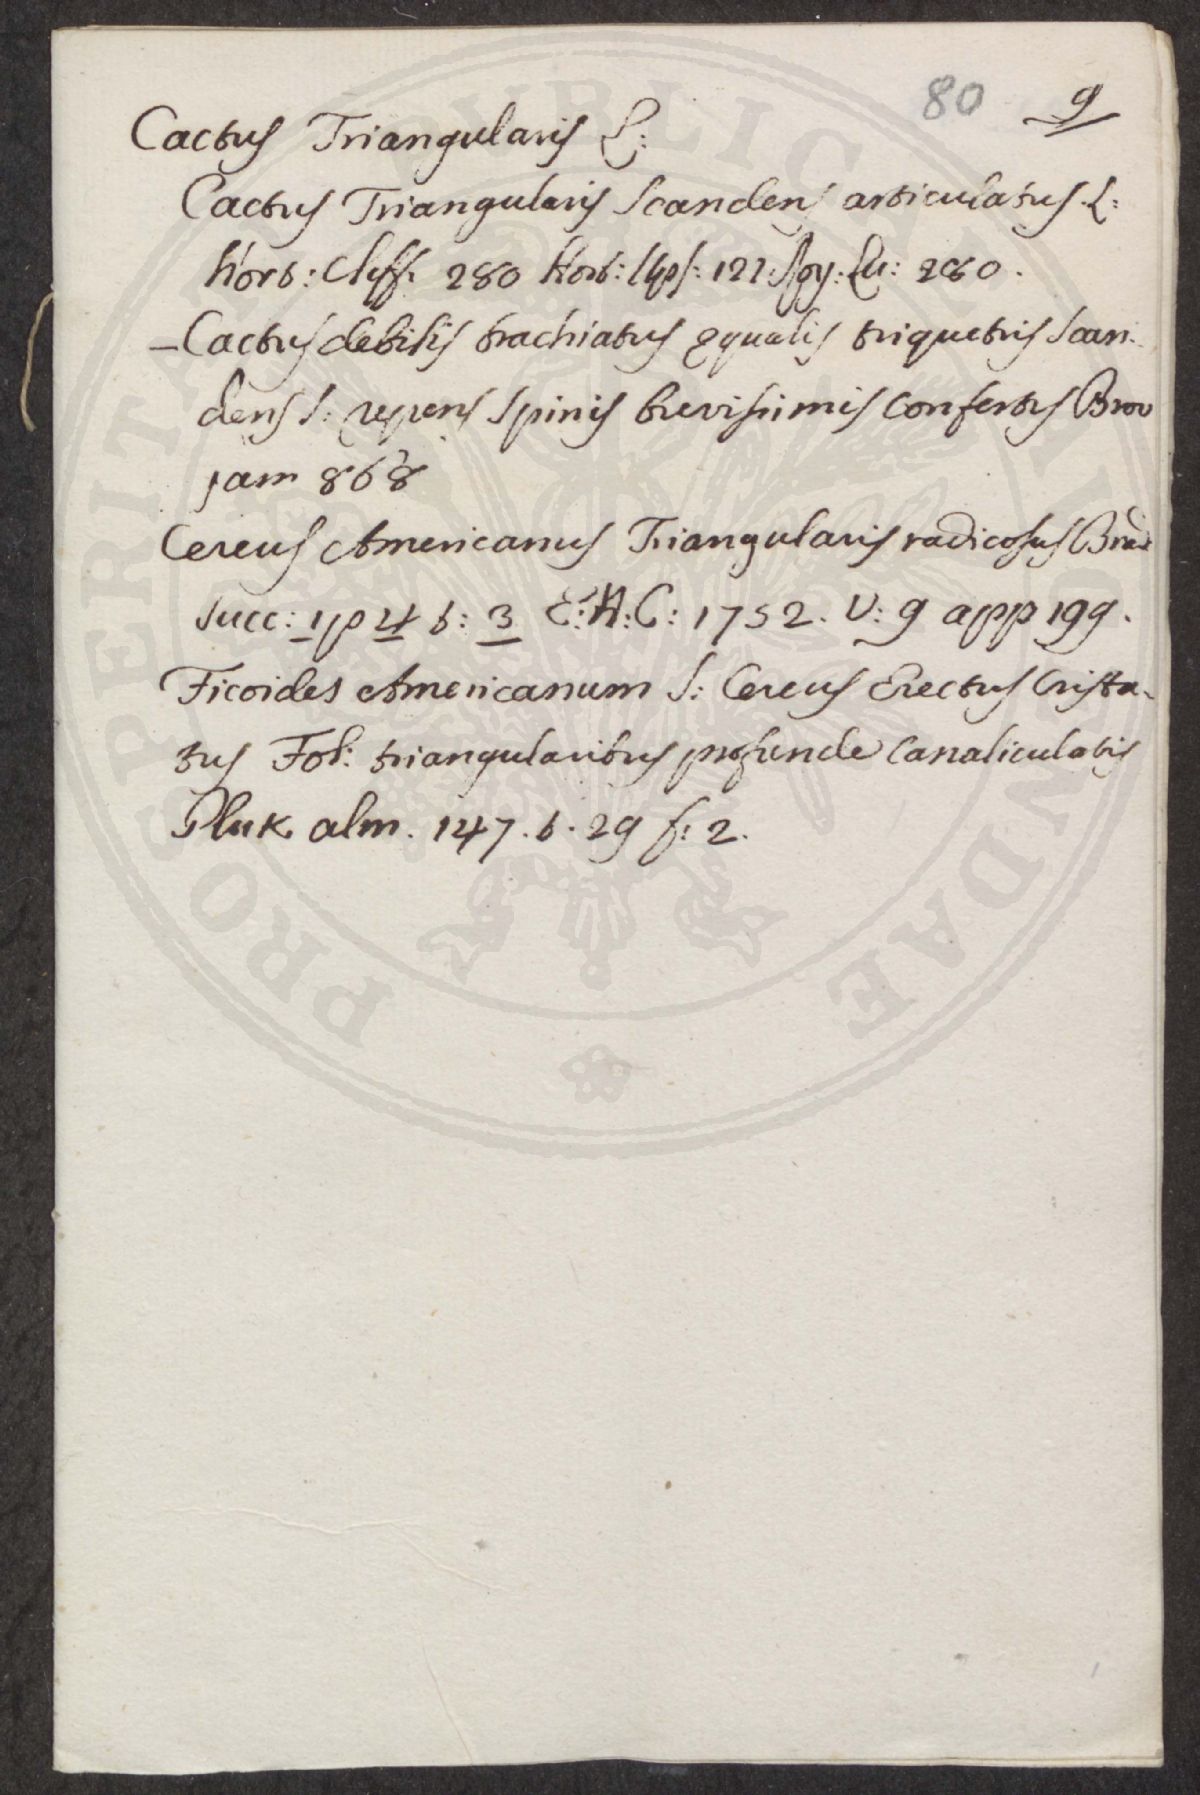 80 9
Cactus Triangularis L:
Cactus Triangularis Scandens articulatus. L:
Hort: Cliff: 280 Hort: Ups: 122. Roy: Lu: 280.
– Cactus debilis brachiatus equalis triquetris Scan-
dens S: repens Spinis brevissimis Confertus Brow
jam 868
Cereus Americanus Triangularis radicosus Brad
Succ: 1 p 4 t: 3 E: N: C: 1752. V: 9 app 199.
Ficoides Americanum S: Cereus Erectus Crista-
tus Fol: triangularibus profunde Canaliculatis
Pluk alm. 147. t. 29 f: 2.